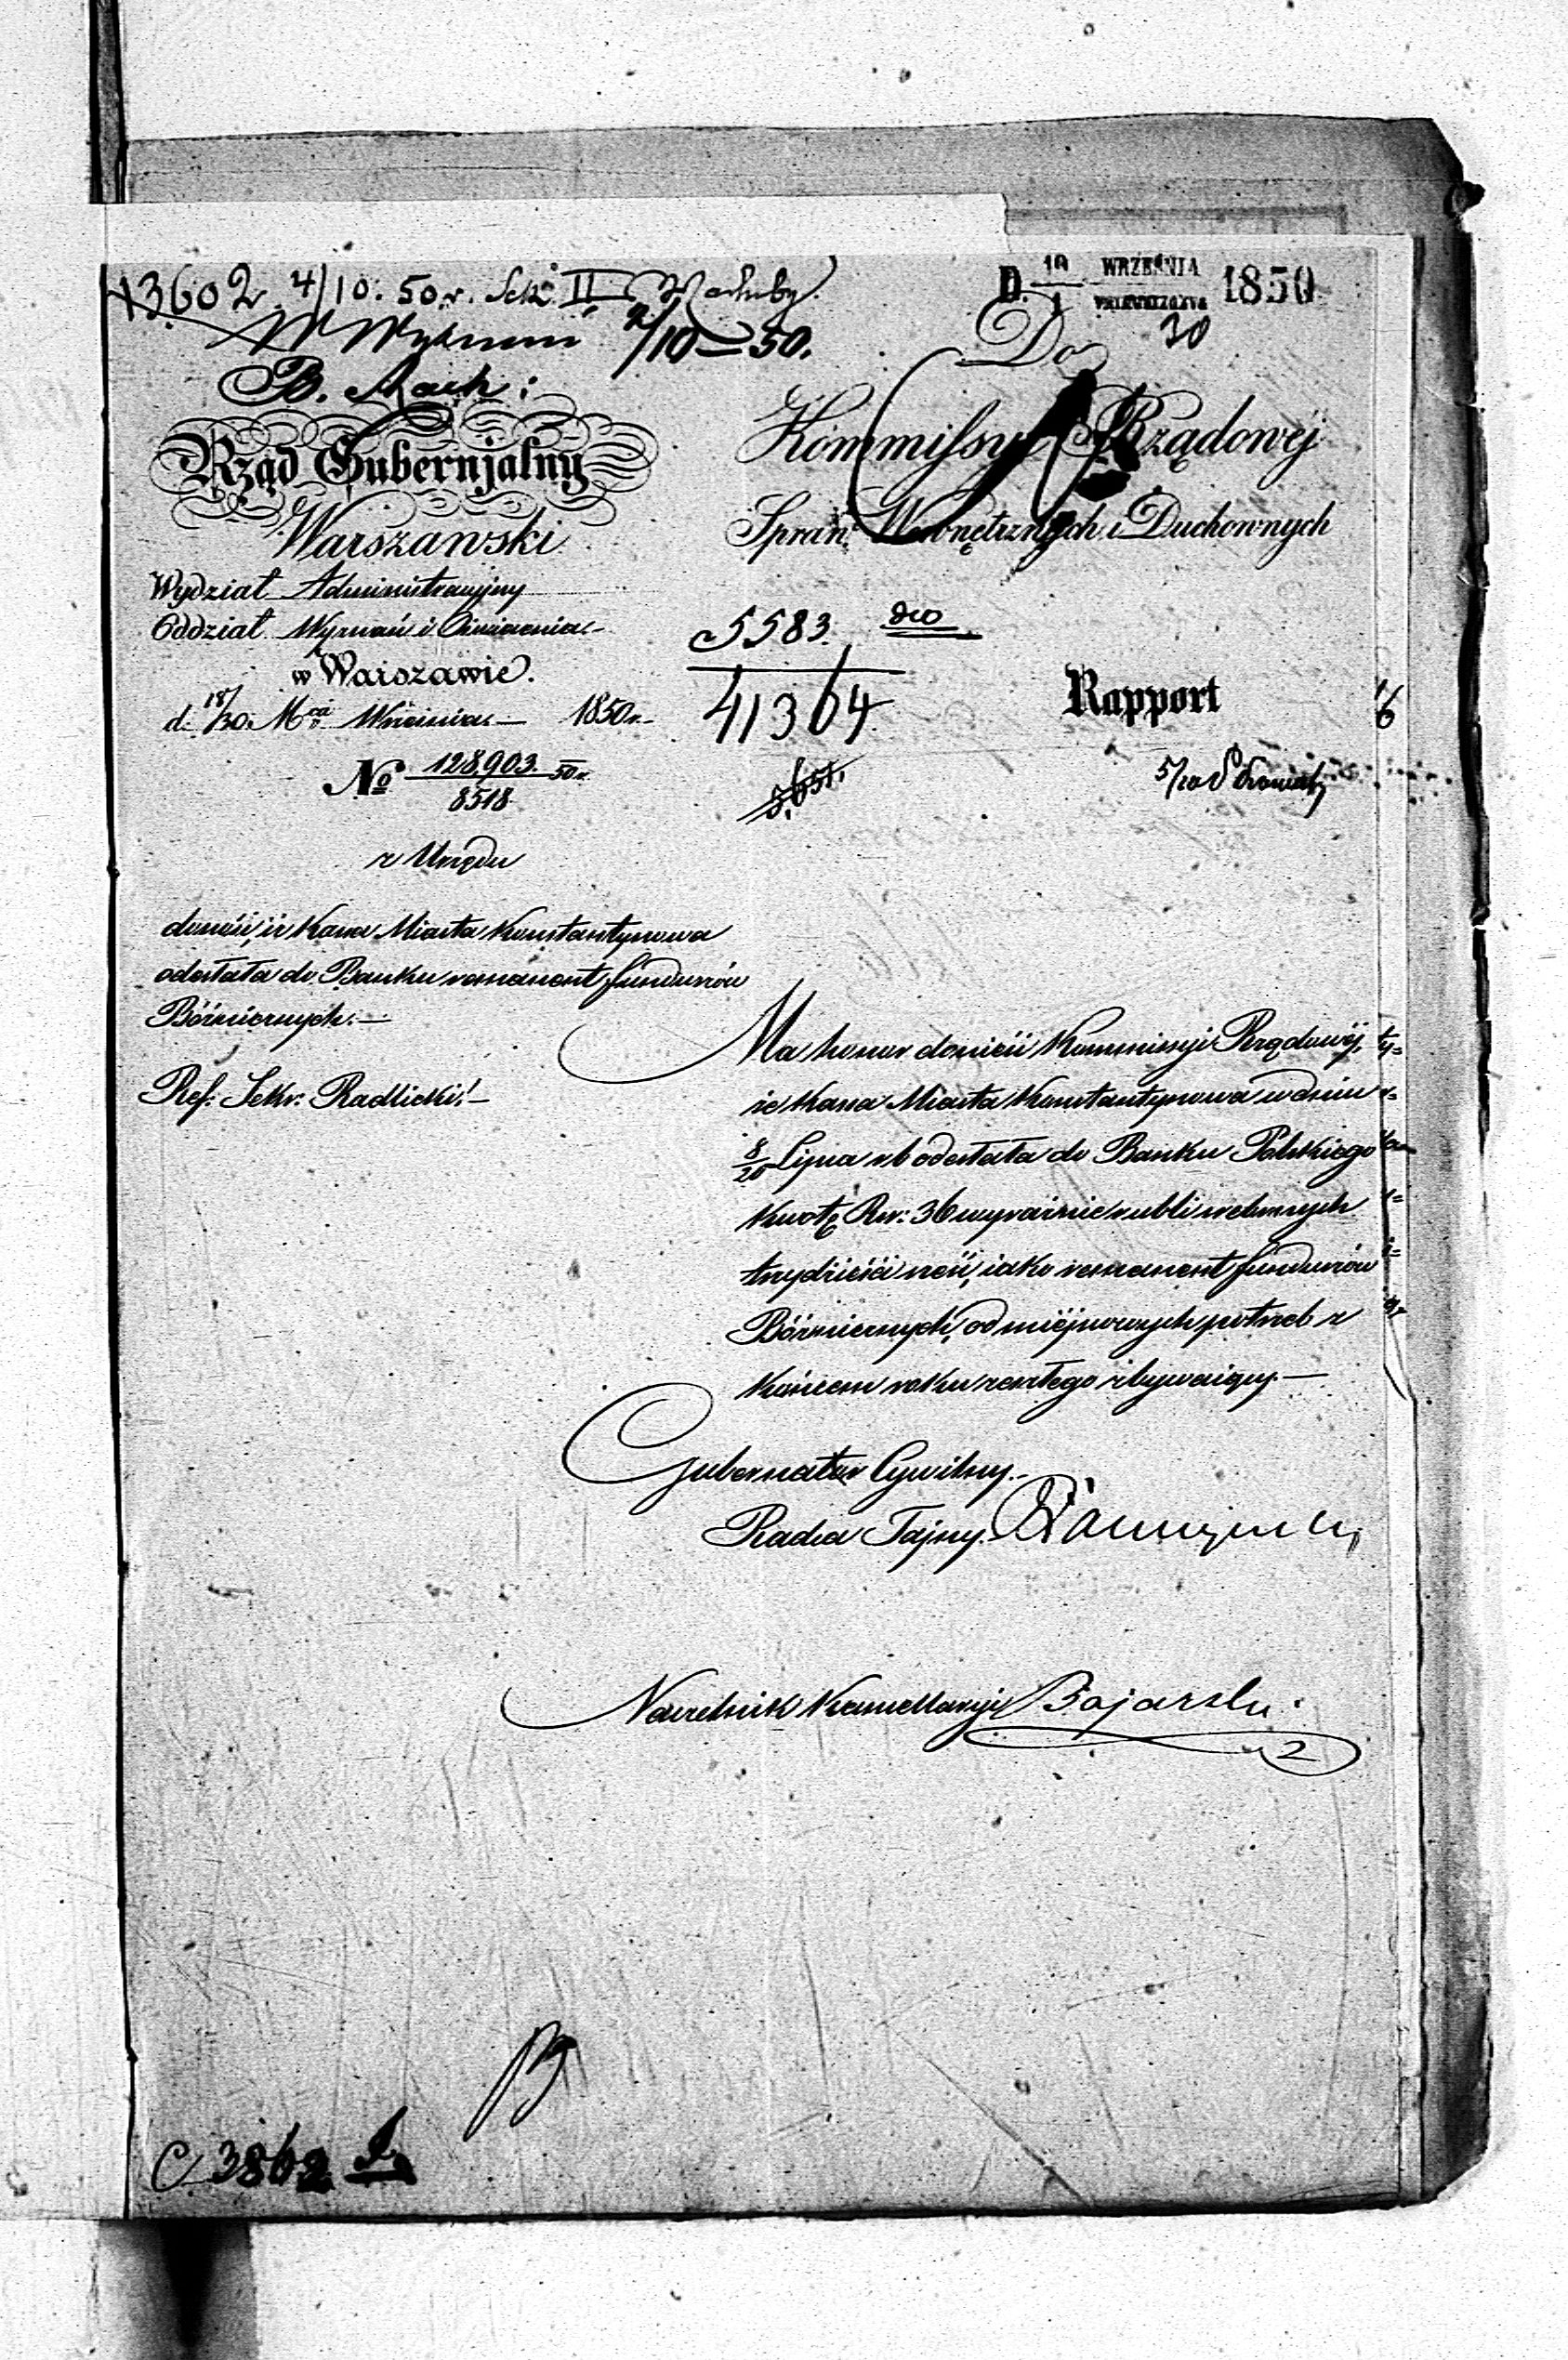 13602 4/10. 50 r. Sek. II
D. 19 WRZEŚNIA 1850
1
30
2/10 – 50.
Do
B. Rach:
Rząd Gubernjalny
Kommissyi Rządowéj
Warszawski
Spraw Wewnętrznych i Duchownych
Wydział Administracyjny
Oddział Wyznań i Oświecenia
w Warszawie.
d. 18/30 Mca Września 1850 r.
5583.
41364
Rapport
No 128,903. 50 r.
8518
z Urzędu
donosi, iż Kassa Miasta Konstantynowa
odesłała do Banku remanent funduszów
Bóżniczych.—
Ref. Sekr. Radlicki.—
Ma honor donieść Kommissyi Rządowéj,
że Kassa Miasta Konstantynowa w dniu
8/20 Lipca r b odesłała do Banku Polskiego
kwotę Rsr: 36 wyraźnie rubli srebrnych
trzydzieści sześć, jako remanent funduszów
Bóżniczych, od miejscowych potrzeb z
końcem roku zeszłego zbywający.—
Gubernator Cywilny.
Radca Tajny.
Naczelnik Kancellaryi Bojarski
C 3862